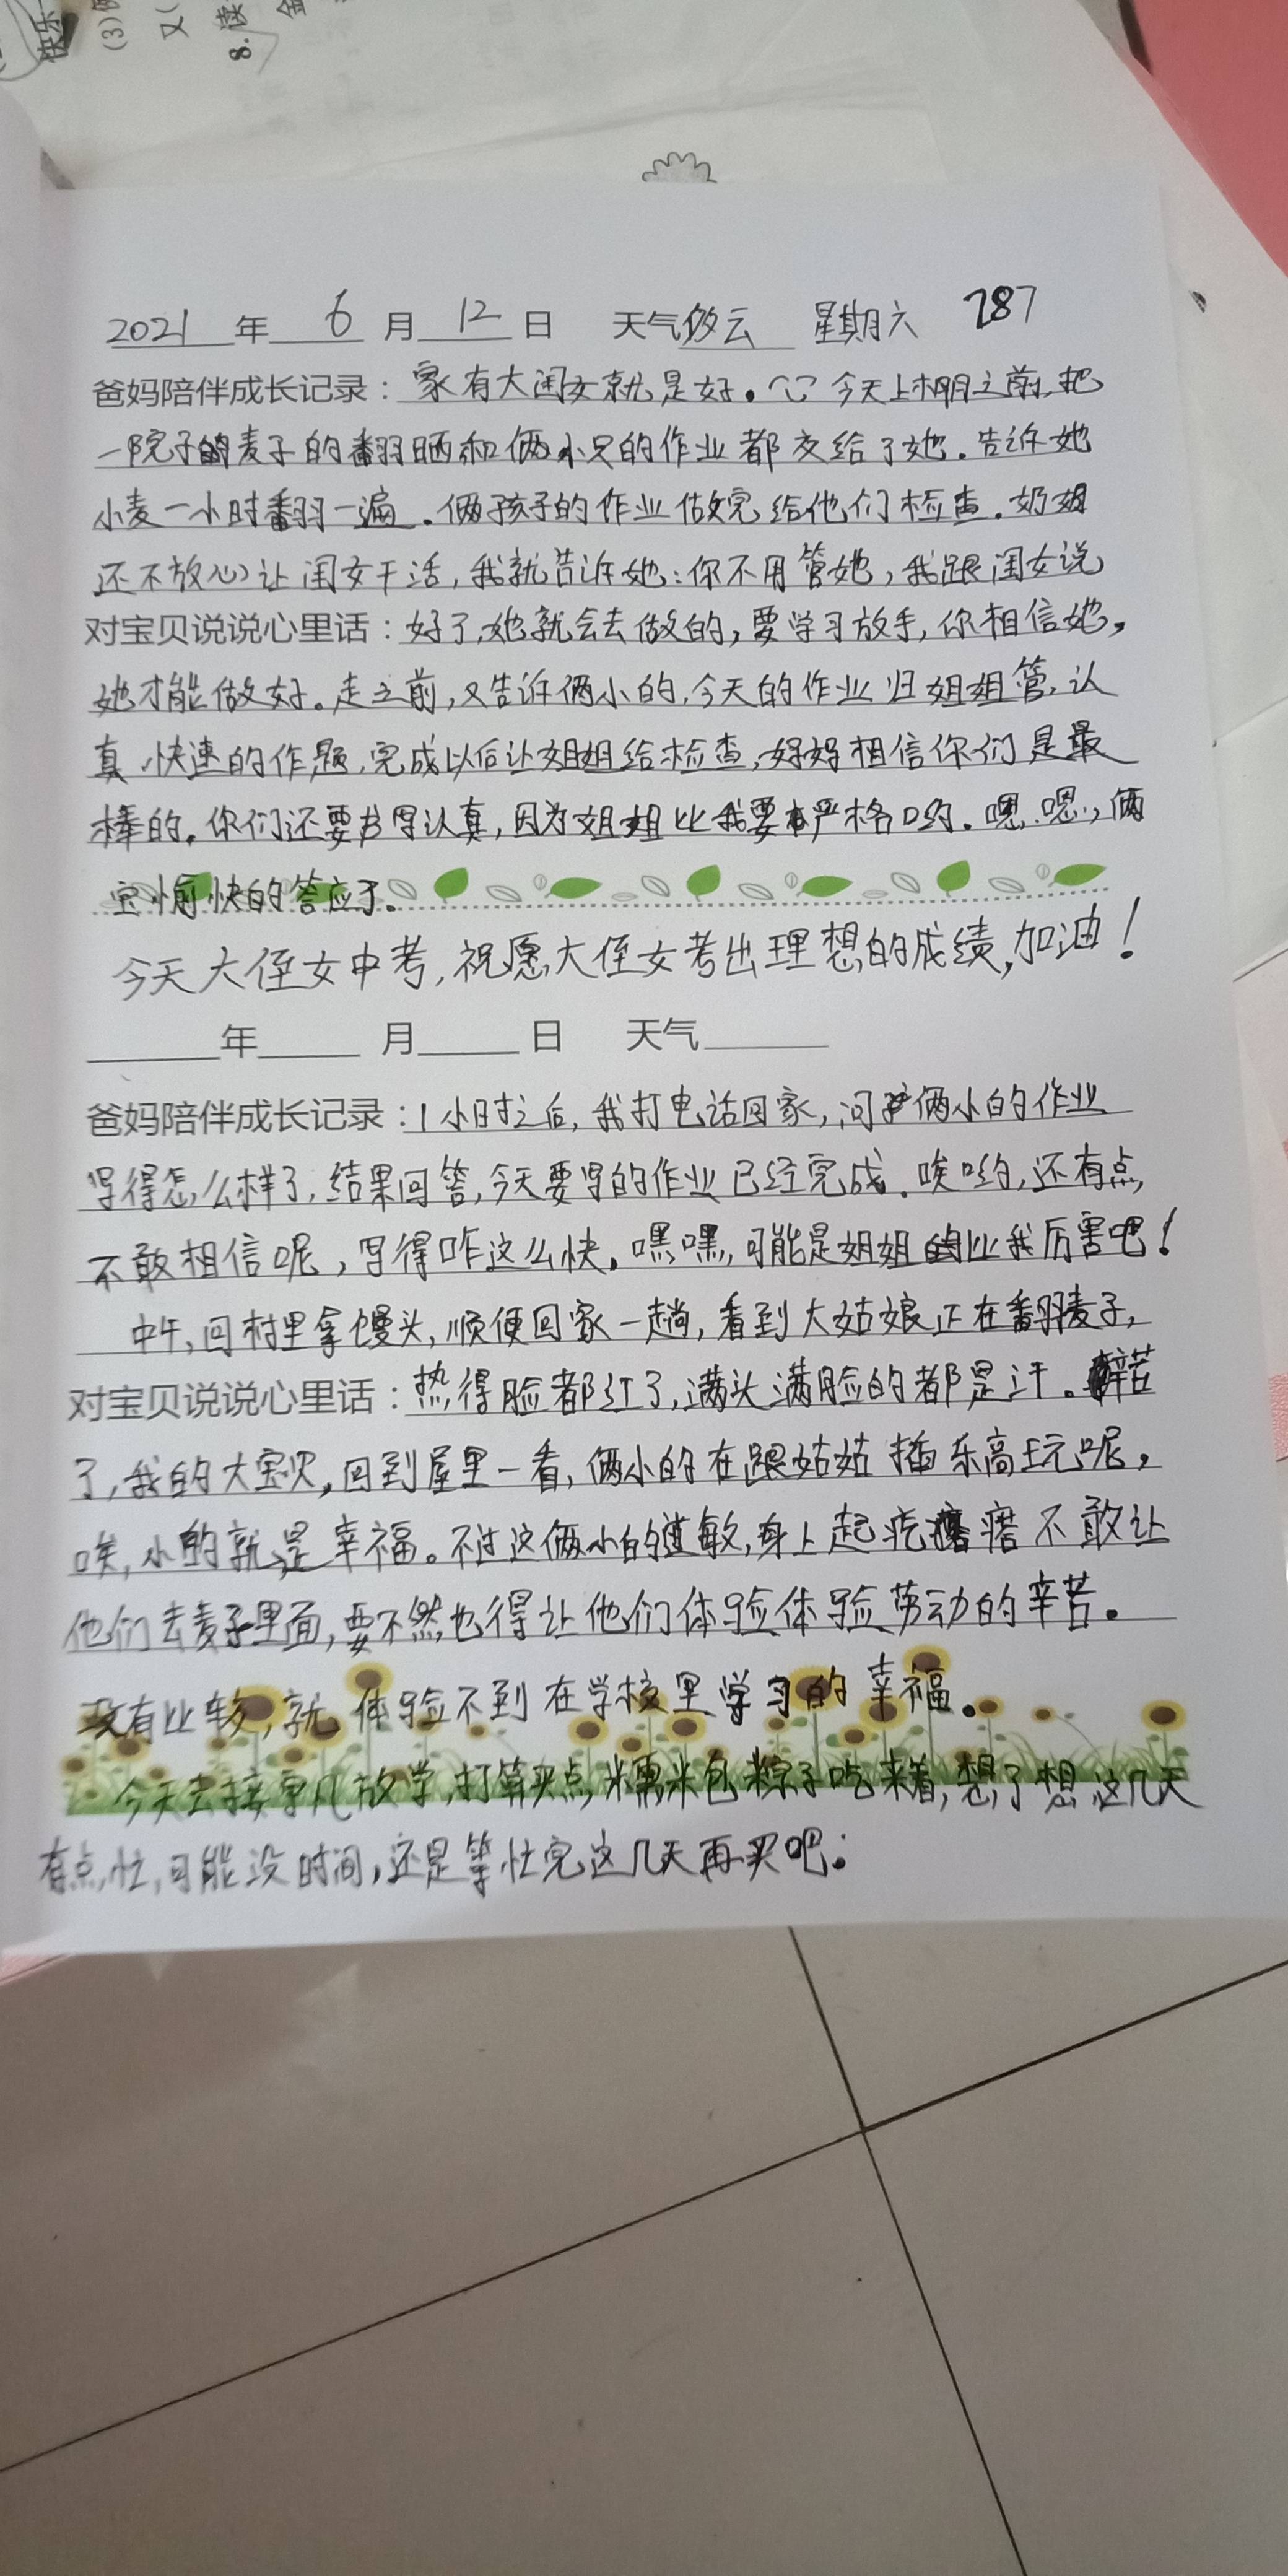 快乐
(3)
又(
8.读
金
2021年 6月 12日 天气多云 星期六 287
爸妈陪伴成长记录：家有大闺女就是好。今天上棚之前,把
一院子的麦子的翻晒和俩小只的作业都交给了她.告诉她
小麦一小时翻一遍.俩孩子的作业做完给他们检查.奶奶
还不放心让闺女干活,我就告诉她:你不用管她,我跟闺女说
对宝贝说说心里话：好了,她就会去做的,要学习放手,你相信她,
她才能做好。走之前,又告诉俩小的,今天的作业归姐姐管,认
真、快速的作题,完成以后让姐姐给检查,妈妈相信你们是最
棒的.你们还要书写认真,因为姐姐比我要严格哟.嗯,嗯,俩
宝愉快的答应了。
今天大侄女中考,祝愿大侄女考出理想的成绩,加油!
年 月 日 天气
爸妈陪伴成长记录：1小时之后,我打电话回家,问俩小的作业
写得怎么样了,结果回答,今天要写的作业已经完成.唉哟,还有点
不敢相信呢,写得咋这么快.嘿嘿,可能是姐姐比我厉害吧!
中午,回村里拿馒头,顺便回家一趟,看到大姑娘正在翻麦子,
对宝贝说说心里话：热得脸都红了,满头满脸的都是汗。辛苦
了,我的大宝贝,回到屋里一看,俩小的在跟姑姑插乐高玩呢,
唉,小的就是幸福。不过这俩小的过敏,身上起疙瘩不敢让
他们去麦子里面,要不然也得让他们体验体验劳动的辛苦。
没有比较,就体验不到在学校里学习的幸福。
今天去接宇凡放学,打算买点糯米包粽子吃来着,想了想,这几天
有点忙,可能没时间,还是等忙完这几天再买吧.